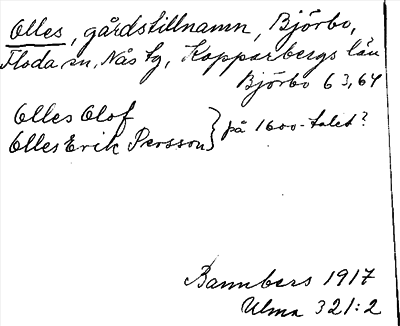 Olles, gårdstillnamn, Björbo,
Floda sn, Nås tg, Kopparbergs län
Björbo 63,64
Olles Olof
Olles Erik Persson } på 1600-talet?
Bannbers 1917
Ulma 321:2